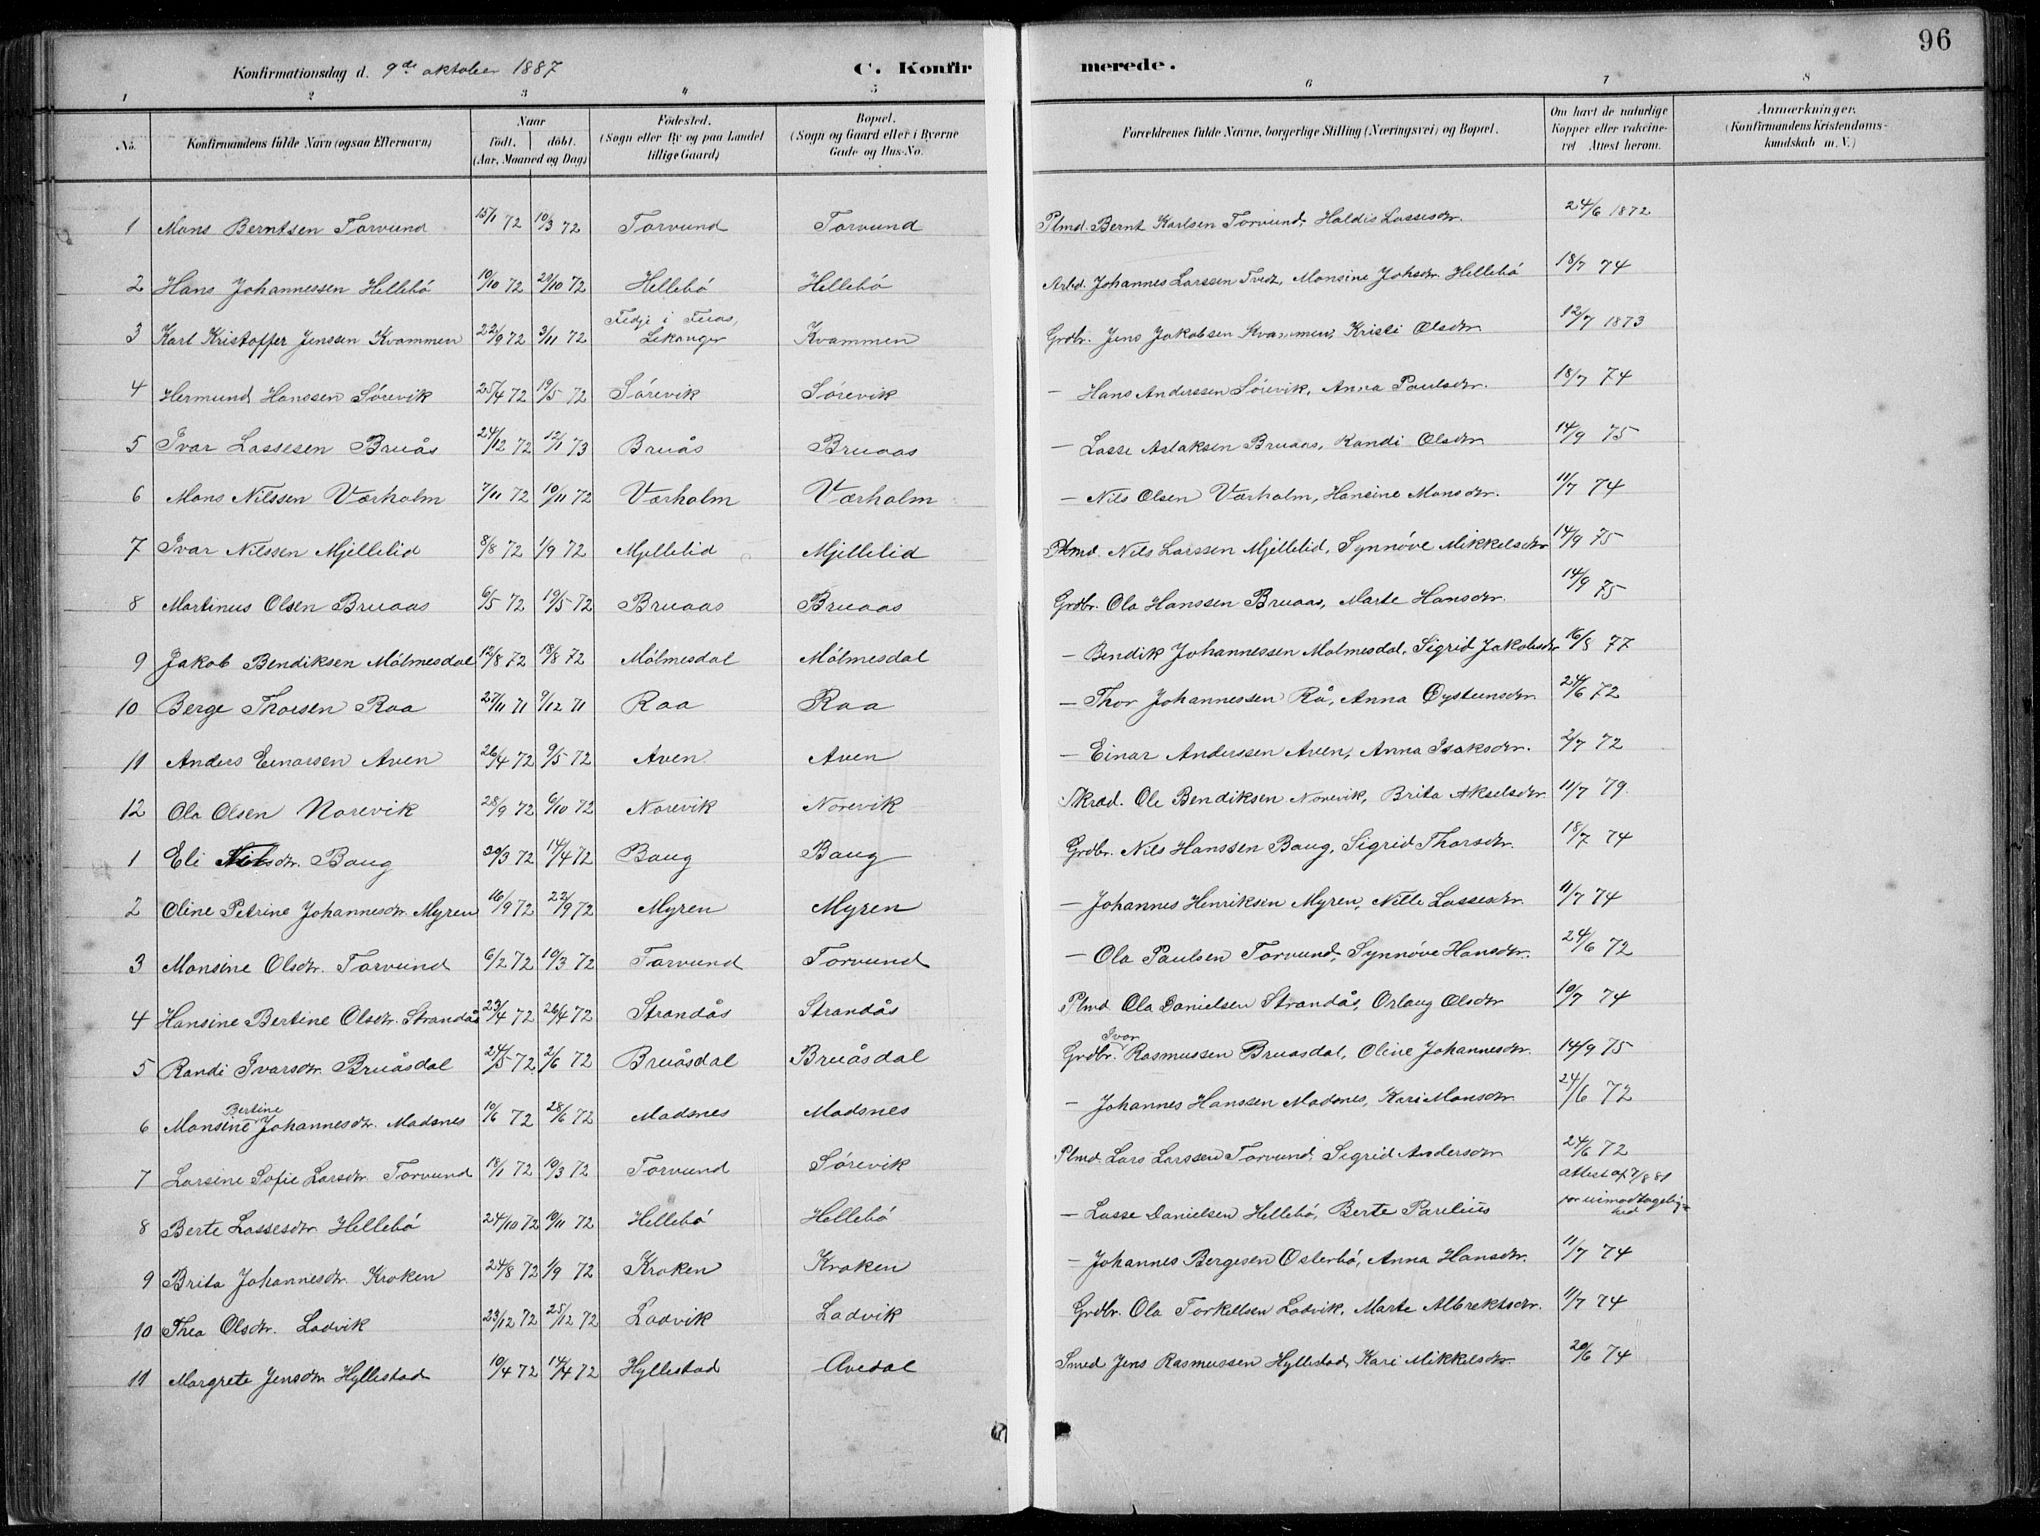 96
Konfirmationsdag d. 9de oktober 1887 C. Konfir merede.
1 2 3 4 5 6 7 8
No. Konfirmandens fulde Navn (ogsaa Efternavn) Naar födt. döbt. (Aar, Maaned og Dag) Födested. (Sogn eller By og paa Landet tillige Gaard) Bopæl. (Sogn og Gaard eller i Byerne Gade og Hus-No. Forældrenes fulde Navne, borgerlige Stilling (Næringsvei) og Bopæl. Om havt de naturlige Kopper eller vakcineret Attest herom. Anmærkninger. (Konfirmandens Kristendomskundskab m. V.)
1 Mons Berntsen Torvund 15/1 72 10/3 72 Torvund Torvund Plmd. Bernt Karlsen Torvund, Haldis Lassesdr. 24/6 1872
2 Hans Johannessen Hellebö 10/10 72 20/10 72 Hellebö Hellebö Arbd. Johannes Larssen Tvedt, Monsine Johsdr. Hellebö 18/7 74
3 Karl Kristoffer Jenssen Kvammen 22/9 72 3/11 72 Fedje i Lekanger Kvammen Grdbr. Jens Jakobsen Kvammen, Kristi Olsdr 12/7 1873
4 Hermund Hanssen Sörevik 25/4 72 19/5 72 Sörevik Sörevik — Hans Anderssen Sörevik, Anna Paulsdr. 18/7 74
5 Ivar Lassesen Bruås 24/12 72 12/1 73 Bruås Bruaas — Lasse Aslaksen Bruaas, Randi Olsdr 14/9 75
6 Mons Nilssen Værholm 7/11 72 10/11 72 Værholm Værholm — Nils Olsen Værholm, Hansine Monsdr. 11/7 74
7 Ivar Nilssen Mjellelid 8/8 72 1/9 72 Mjellelid Mjellelid Plmd. Nils Larssen Mjellelid, Synnøve Mikkelsdr 14/9 75
8 Martinus Olsen Bruaas 6/5 72 19/5 72 Bruaas Bruaas Grdbr. Ola Hanssen Bruaas, Marte Hansdr. 14/9 75
9 Jakob Bendiksen Mölmesdal 12/8 72 18/8 72 Mölmesdal Mölmesdal — Bendik Johannessen Mölmesdal, Sigrid Jakobsdr 16/8 77
10 Berge Thorsen Raa 27/11 71 9/12 71 Raa Raa — Thor Johannessen Rå, Anna Øysteinsdr 24/6 72
11 Anders Einarsen Aven 26/4 72 9/5 72 Aven Aven — Einar Anderssen Aven, Anna Isaksdr. 2/7 72
12 Ola Olsen Norevik 28/9 72 6/10 72 Norevik Norevik Skræd. Ole Bendiksen Norevik, Brita Akselsdr 11/7 79
1 Eli Nilsdr. Baug 30/3 72 14/4 72 Baug Baug Grdbr. Nils Hanssen Baug, Sigrid Thorsdr. 18/7 74
2 Oline Petrine Johannesdr. Myren 16/9 72 22/9 72 Myren Myren — Johannes Henriksen Myren, Nille Lassesdr. 11/7 74
3 Monsine Olsdr. Torvund 6/2 72 10/3 72 Torvund Torvund — Ola Paulsen Torvund, Synnøve Hansdr. 24/6 72
4 Hansine Bertine Olsdr. Strandås 23/4 72 26/4 72 Strandås Strandås Plmd Ola Danielsen Strandås, Orlaug Olsdr 10/7 74
5 Randi Ivarsdr. Bruåsdal 24/5 72 2/6 72 Bruåsdal Bruåsdal Grdbr. Ivar Rasmussen Bruasdal, Oline Johannesdr. 14/9 75
6 Monsine Bertine Johannesdr. Madsnes 10/6 72 28/6 72 Madsnes Madsnes — Johannes Hanssen Madsnes, Kari Monsdr 24/6 72
7 Larsine Sofie Larsdr. Torvund 18/1 72 10/3 72 Torvund Sörevik Plmd. Lars Larssen Torvund, Sigrid Andersdr 24/6 72
8 Berte Lassesdr. Hellebö 24/10 72 10/11 72 Hellebö Hellebö — Lasse Danielsen Hellebö, Berte Parelius attest af 7/8 81 for uimodtagelighed
9 Brita Johannesdr. Kroken 24/8 72 1/9 72 Kroken Kroken — Johannes Bergesen Österbö, Anna Hansdr. 11/7 74
10 Thea Olsdr. Ladvik 23/12 72 25/12 72 Ladvik Ladvik Grdbr. Ola Torkellsen Ladvik, Marte Albrektsdr. 11/7 74
11 Margrete Jensdr Hyllestad 10/4 72 14/4 72 Hyllestad Avedal Smed Jens Rasmussen Hyllestad, Kari Mikkelsdr 20/6 74